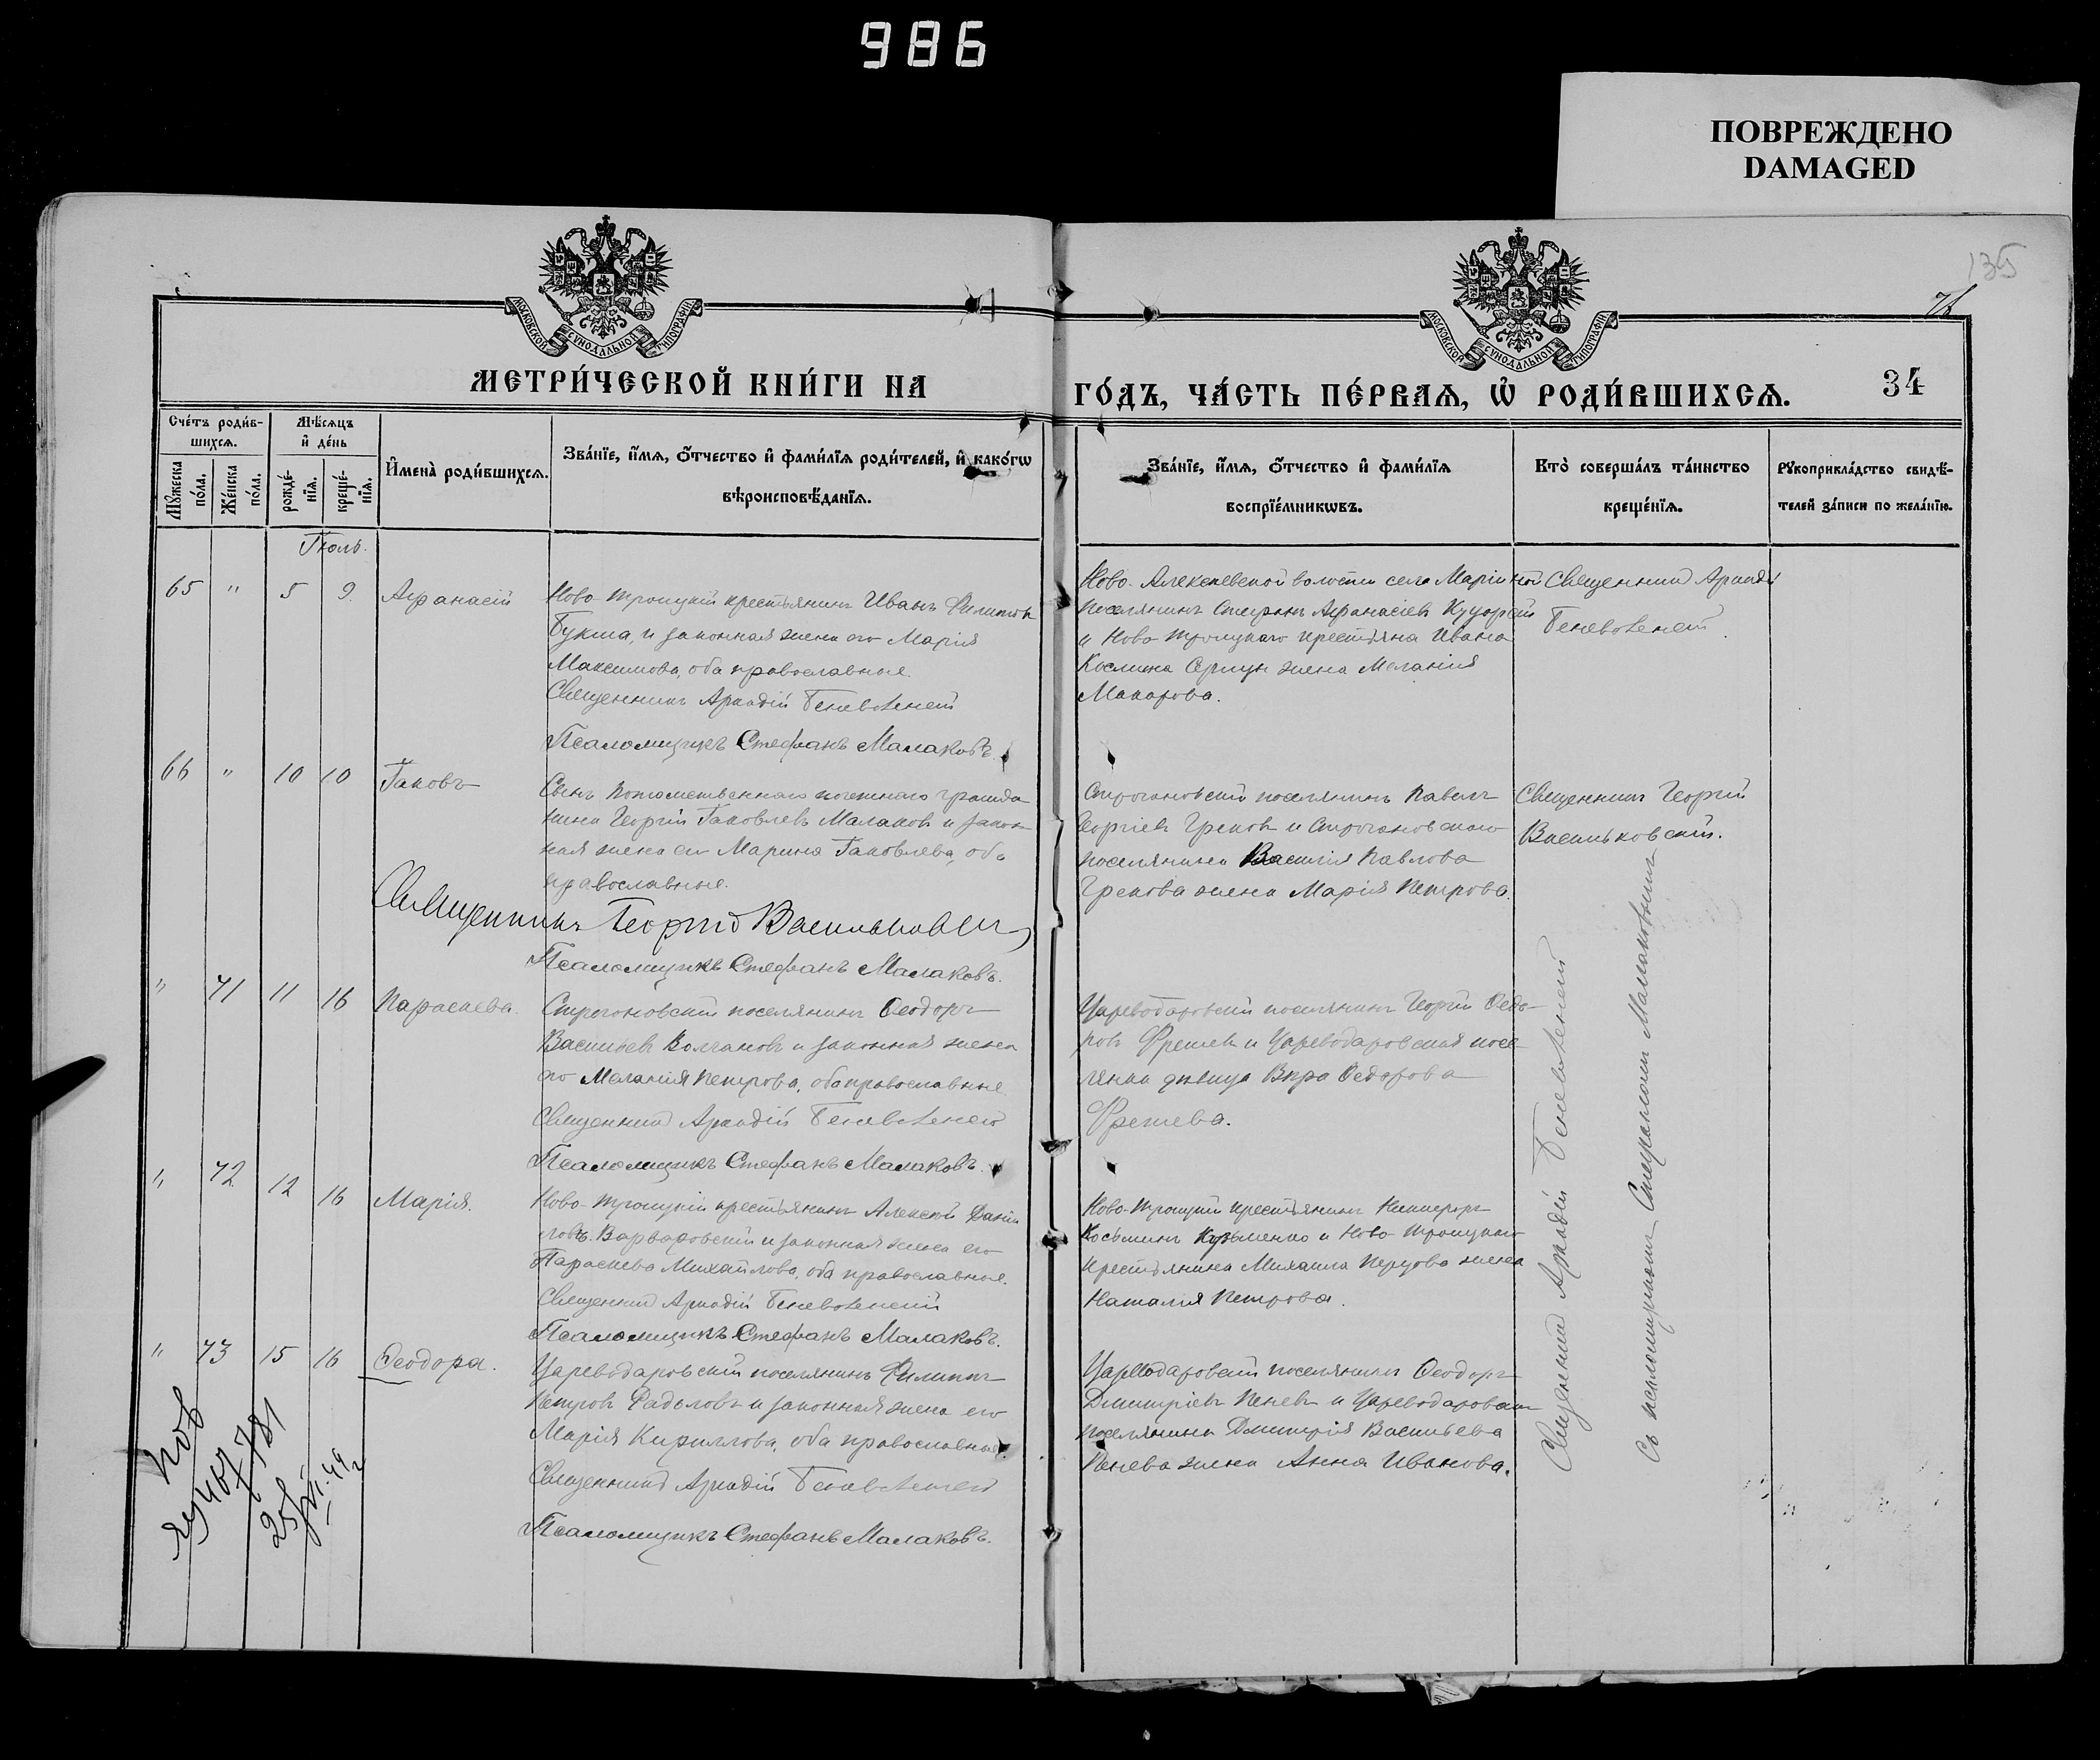 986
ПОВРЕЖДЕНО
DAMAGED
135
МОСКОВСКОЙ СѴНОДАЛЬНОЙ ТИПОГРАФІИ
МОСКОВСКОЙ СѴНОДАЛЬНОЙ ТИПОГРАФІИ
МЕТРИ́ЧЕСКОЙ КНИ́ГИ НА
ГО́ДЪ, ЧА́СТЬ ПЕ́РВАЯ, Ѡ҆ РОДИ́ВШИХСЯ.
34
Сче́тъ роди́в-
шихся.
Мѣ́сяцъ
и҆ де́нь
Мꙋ́жеска
по́ла.
Же́нска
по́ла.
рожде́-
нїя.
креще́-
нїя.
И҆мена̀ роди́вшихся.
Зва́нїе, и҆́мя, ѻ҆́тчество и҆ фами́лїя роди́телей, и҆ како́гѡ
вѣроисповѣ́данїя.
Зва́нїе, и҆́мя, ѻ҆́тчество и҆ фами́лїя
воспрїе́мникѡвъ.
Кто̀ соверша́лъ та́инство
креще́нїя.
Рꙋкоприкла́дство свидѣ́-
телей за́писи по жела́нїю.
Іюль.
65 " 5 9 Афанасій
Ново-Троицкій крестьянинъ Иванъ Филиповъ
Букша, и законная жена его Марія
Максимова, оба православные.
Священникъ Аркадій
Псаломщикъ Стефанъ Малаковъ.
Ново-Алексеевской волости села
поселянинъ Стефанъ Афанасіевъ
и Ново-Троицкаго крестьянина Ивана
жена Меланія
Макарова.
Священникъ Аркадій
66 " 10 10 Іаковъ
Сынъ потомственнаго почетнаго гражда-
нина Георгій Іаковлевъ Малаковъ и закон-
ная жена его Марина Іаковлева, оба
православные.
Священникъ Георгій Васильковскій
Псаломщикъ Стефанъ Малаковъ.
Строгановскій поселянинъ Павелъ
Георгіевъ Грековъ и Строгановскаго
поселянина Василія Павлова
Грекова жена Марія Петрова.
Священникъ Георгій
Васильковскій.
" 71 11 16 Параскева.
Строгоновскій поселянинъ Ѳеодоръ
Васильевъ Волчановъ и законная жена
его Меланія Петрова, оба православные
Священникъ Аркадій
Псаломщикъ Стефанъ Малаковъ.
Цареводаровскій поселянинъ Георгій Ѳедо-
ровъ и Цареводаровская посе-
лянка девица Вера Ѳедорова
" 72 12 16 Марія.
Ново-Троицкій крестьянинъ Алексей Дании-
ловъ Варваровскій и законная жена его
Параскева Михайлова, оба православные.
Священникъ Аркадій
Псаломщикъ Стефанъ Малаковъ.
Ново-Троицкій крестьянинъ Никифоръ
Косьминъ Кузьменко и Ново-Троицкаго
крестьянина Михаила жена
Наталія Петрова.
" 73 15 16 Ѳеодора.
Цареводаровскій поселянинъ Филиппъ
Петровъ Радыловъ и законная жена его
Марія Кириллова, оба православные.
Священникъ Аркадій
Псаломщикъ Стефанъ Малаковъ.
Цареводаровскій поселянинъ Ѳеодоръ
Дмитріевъ Пеневъ и Цареводаровскаго
поселянина Дмитрія Васильева
Пенева жена Анна Иванова.
Священникъ Аркадій
Съ псаломщикомъ Стефаномъ